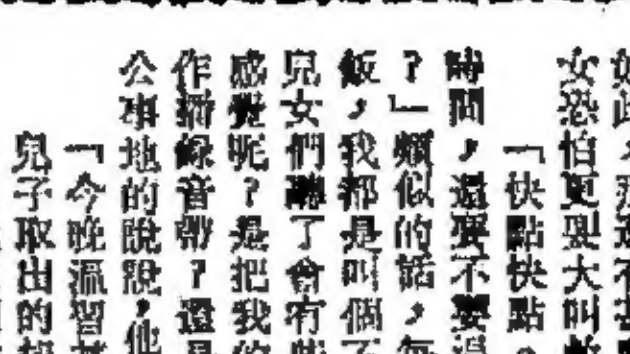 女恐怕更要大叫
「快點快點。
時間，還要不要溫
？」類似的話，每
飯，我都是叫個不
兒女們聽了會有些
感覺呢？是把我的
作播錄音帶？還是
公事地的說說，他
「今晚溫習
兒子取出的